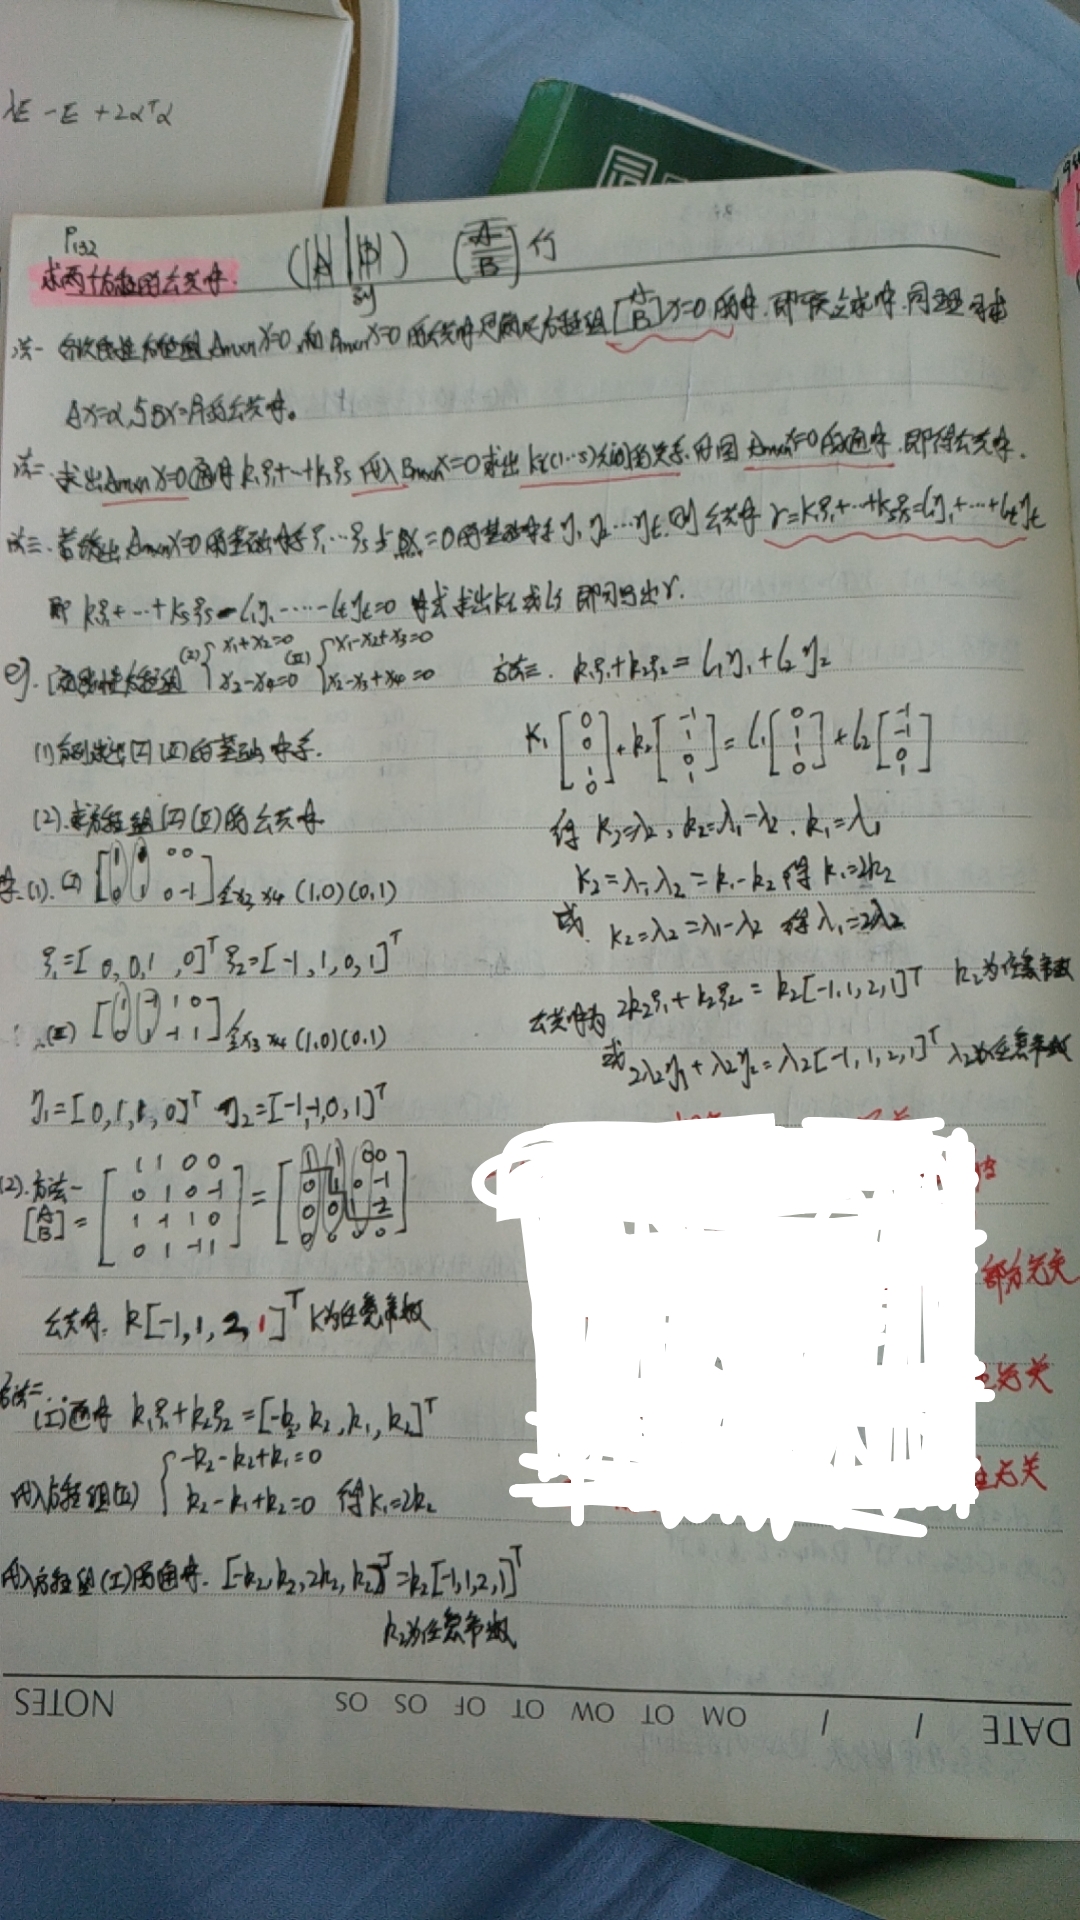 λE - E + 2αᵀα
P132
求两个方程的公共解.
(|A| |B|) [A/B] 行
法一 齐次线性方程组 Amxn X=0 和 Bmxn X=0 的公共解是满足方程组 [A B] X=0 的解. 即联立求解. 同理可求
AX=α与BX=β的公共解。
法二 求出Amxn X=0通解 k₁ξ₁+…+ksξs 代入 Bmxn X=0求出 ki(1…s)之间的关系. 代回 Amxn X=0的通解. 即得公共解.
法三. 若给出Amxn X=0的基础解系 ξ₁…ξs 与 BX=0的基础解系 η₁ η₂…ηt. 则公共解 γ=k₁ξ₁+…+ksξs=l₁η₁+…+ltηt
即 k₁ξ₁+…+ksξs-l₁η₁……-ltηt=0 求出 ki 或 lj 即可写出γ.
例. 线性方程组 (I) { x₁+x₂=0 x₂-x₄=0 (II) { x₁-x₂+x₃=0 x₂-x₃+x₄=0
(1) 分别求出(I)(II)的基础解系.
(2). 求方程组(I)(II)的公共解
解.(1). (I) [1 1 0 0 0 1 0 -1] 令x₃ x₄ (1,0)(0,1)
ξ₁=[0,0,1,0]ᵀ ξ₂=[-1,1,0,1]ᵀ
(II) [1 -1 1 0 0 1 -1 1] 令x₃ x₄ (1,0)(0,1)
η₁=[0,1,1,0]ᵀ η₂=[-1,-1,0,1]ᵀ
(2). 方法一
[A B] = [1 1 0 0 0 1 0 -1 1 -1 1 0 0 1 -1 1] = [1 1 0 0 0 1 0 -1 0 0 1 -2 0 0 0 0]
公共解. k[-1,1,2,1]ᵀ k为任意常数
方法二.
(I)通解 k₁ξ₁+k₂ξ₂=[-k₂,k₂,k₁,k₂]ᵀ
代入方程组(II) { -k₂-k₂+k₁=0 k₂-k₁+k₂=0 得k₁=2k₂
代入方程组(I)的通解. [-k₂,k₂,2k₂,k₂]ᵀ=k₂[-1,1,2,1]ᵀ
k₂为任意常数
方法三. k₁ξ₁+k₂ξ₂=l₁η₁+l₂η₂
k₁[0 0 1 0]+k₂[-1 1 0 1]=l₁[0 1 1 0]+l₂[-1 -1 0 1]
得 k₃=λ₂, k₂=λ₁-λ₂, k₁=λ₁
k₂=λ₁-λ₂=k₁-k₂ 得 k₁=2k₂
或 k₂=λ₂=λ₁-λ₂ 得 λ₁=2λ₂
公共解为 2k₂ξ₁+k₂ξ₂=k₂[-1,1,2,1]ᵀ k₂为任意常数
或 2λ₂η₁+λ₂η₂=λ₂[-1,1,2,1]ᵀ λ₂为任意常数
部分无关
无关
无关
DATE / / MO TU WE TH FR SA SU NOTES